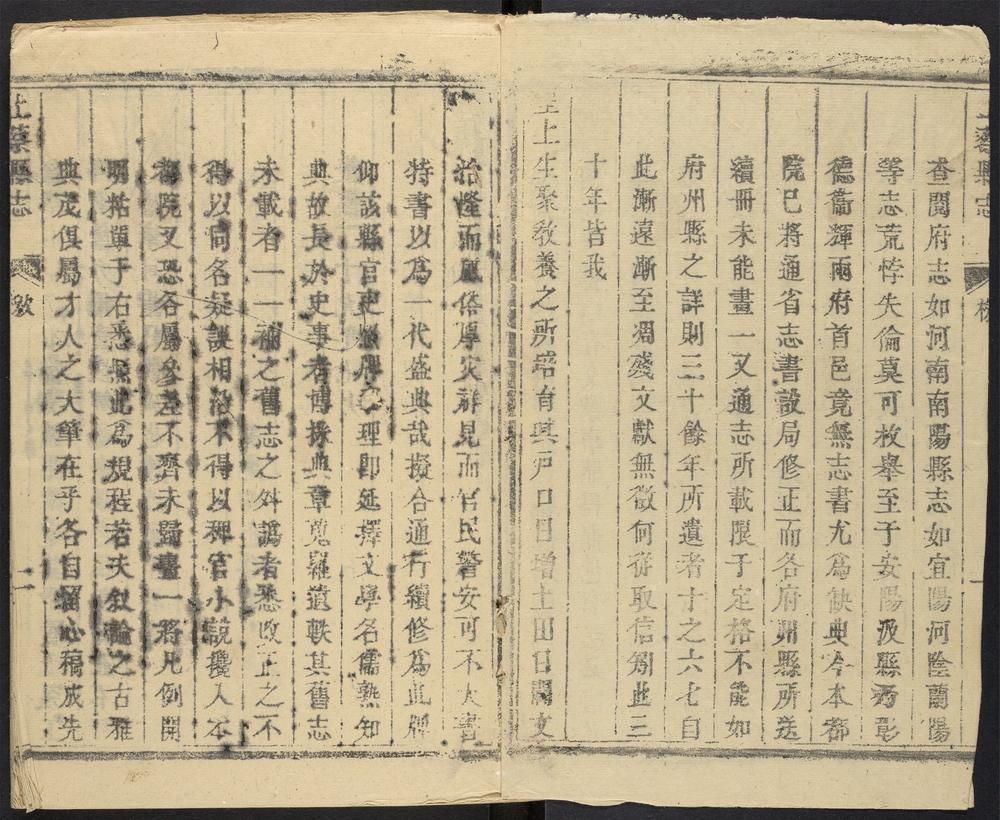 上蔡縣志
查閱府志如河南南陽縣志如宜陽河陰蘭陽
等志荒悖失倫莫可枚舉至于安陽汲縣為彰
德衞輝兩府首邑竟無志書尤為缺典今本都
院已將通省志書設局修正而各府州縣所送
續冊未能畫一又通志所載限于定格不能如
府州縣之詳則三十餘年所遺者十之六七自
此漸遠漸至凋殘文獻無徵何從取信矧此三
十年皆我
皇上生聚敎養之所培育其戸口日增土田日闢文
治隆而風俗厚災祥見而官民警安可不大書
特書以爲一代盛典哉擬合通行續修爲此牌
仰該縣官吏照牌事理即延擇文學名儒熟知
典故長於史事者博採典章蒐羅遺軼其舊志
未載者一一補之舊志之舛譌者悉改正之不
得以同名疑誤相沿不得以稗官小說攙入本
都院又恐各屬參差不齊未歸畫一將凡例開
明粘單于右悉照此爲規程若夫敘論之古雅
典茂俱屬才人之大筆在乎各自留心稿成先
上蔡縣志
二